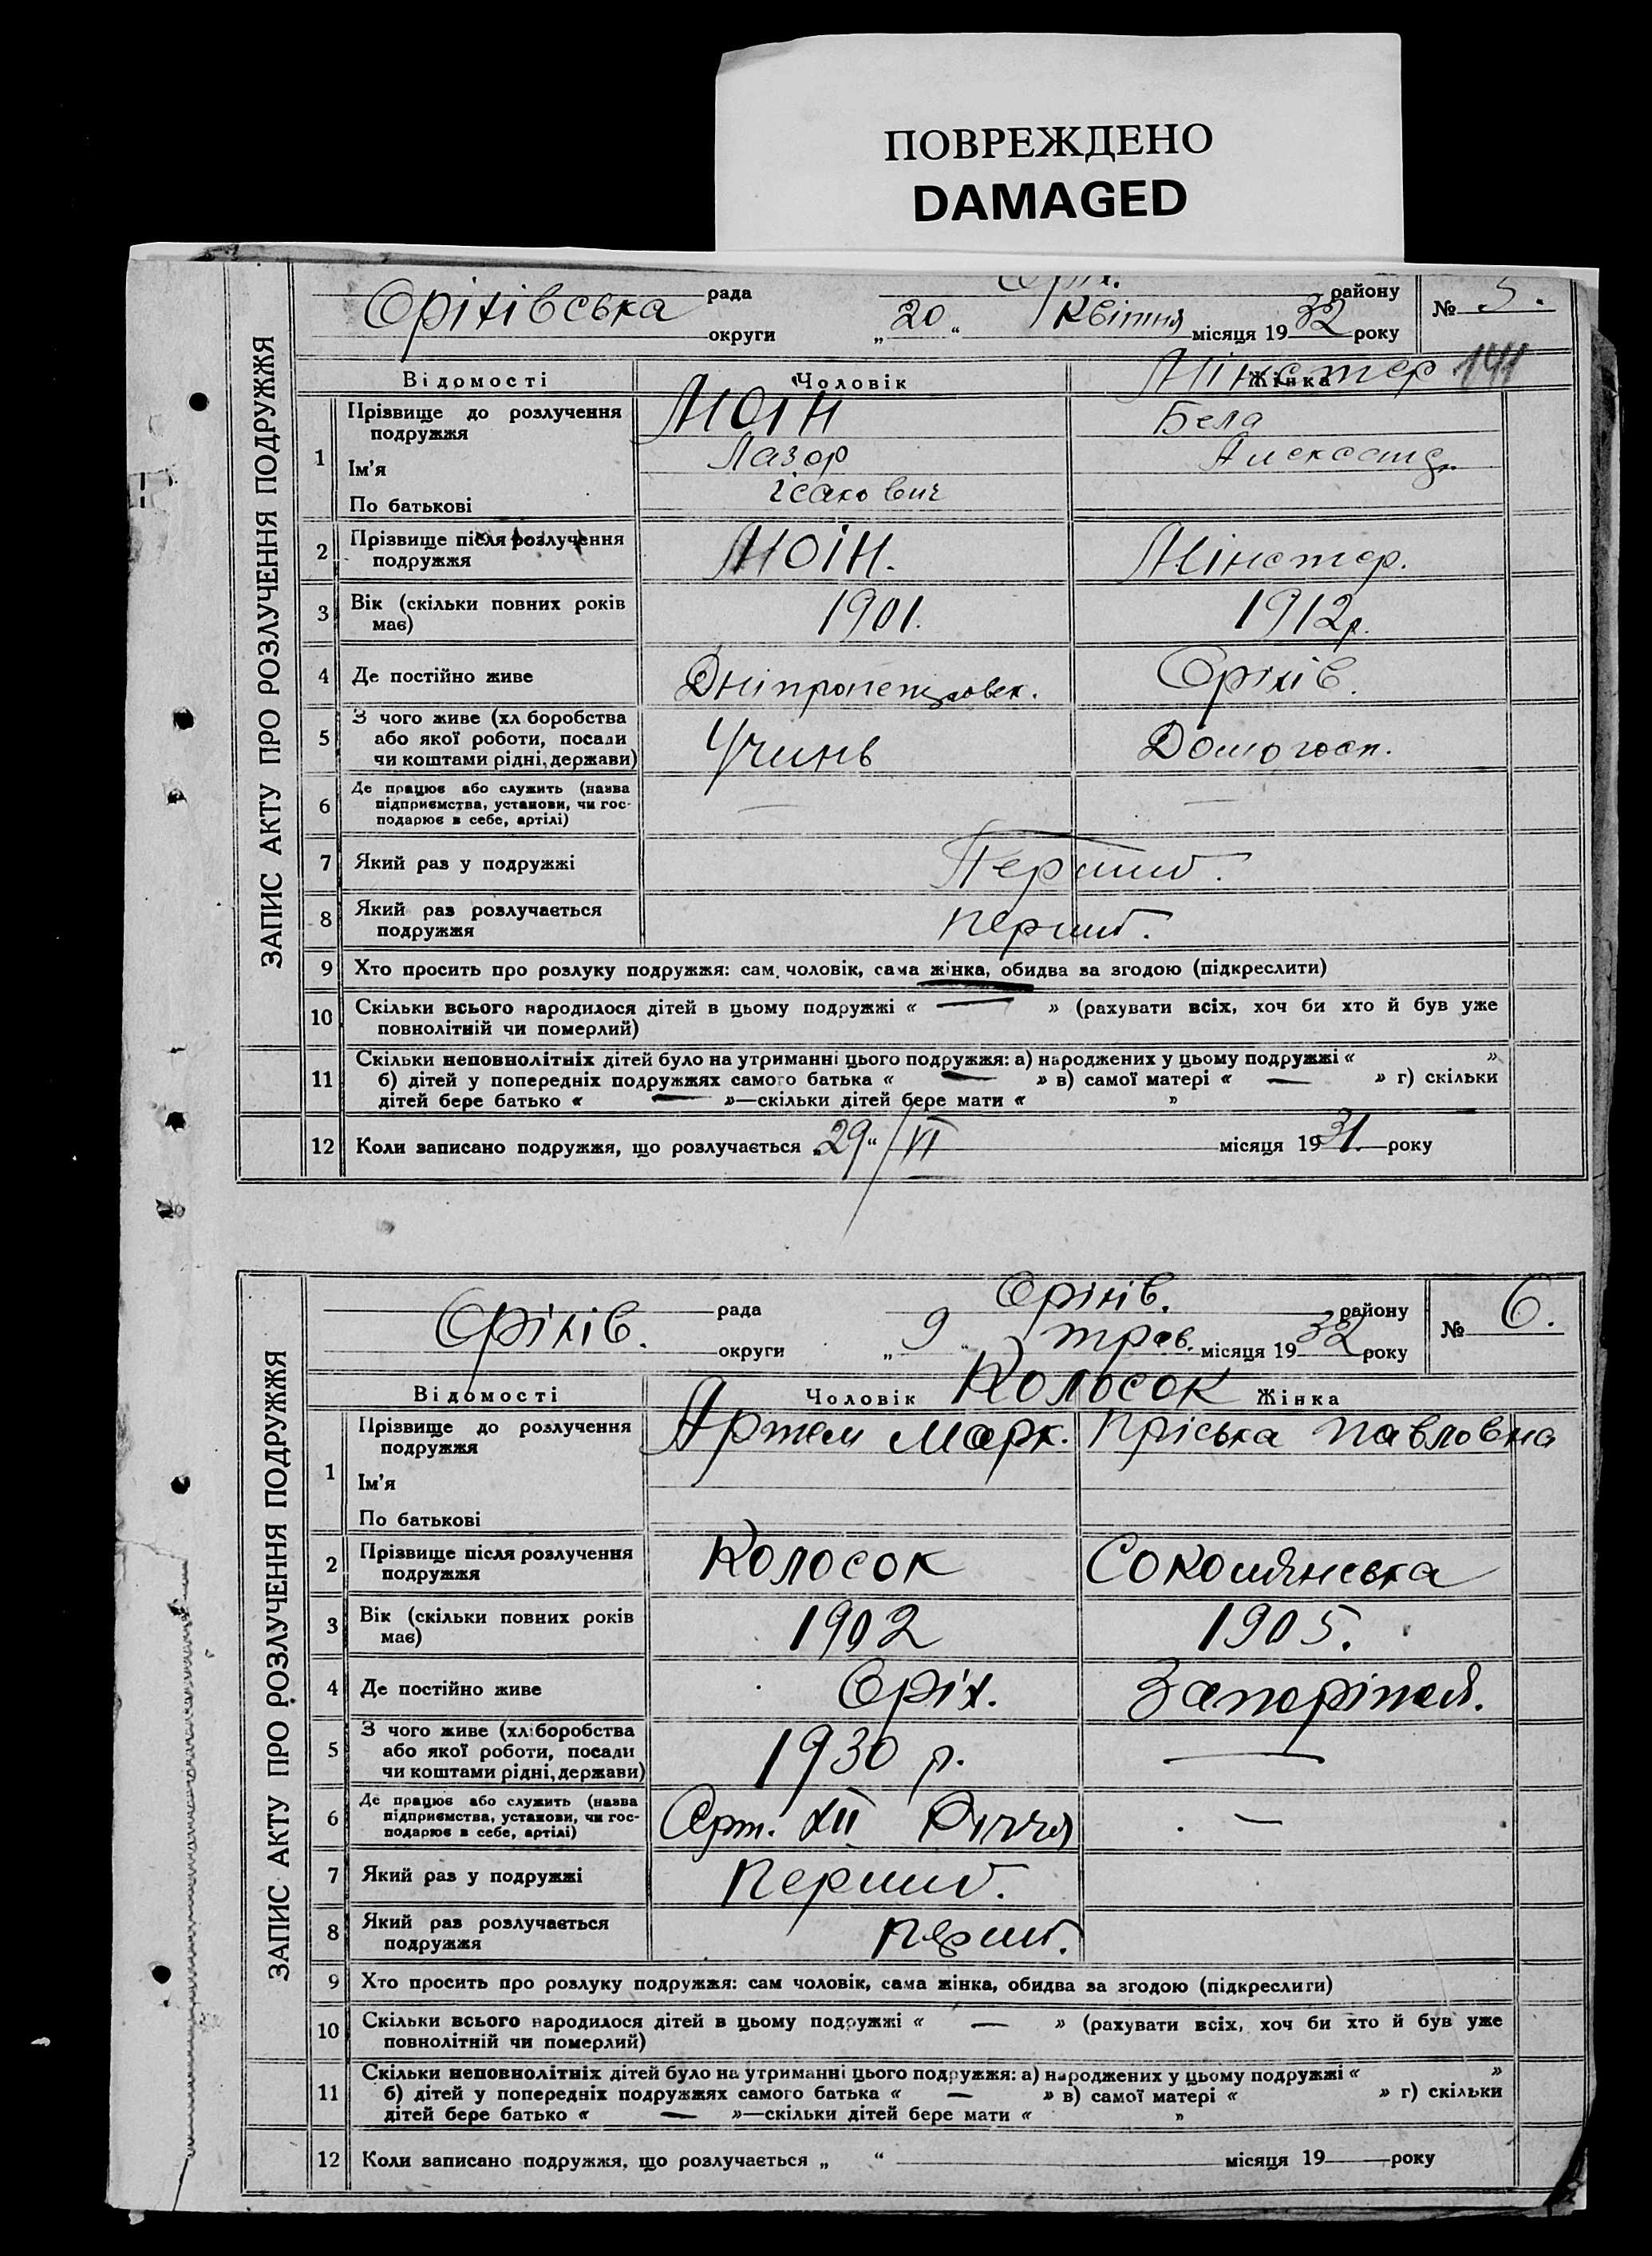 ПОВРЕЖДЕНО
DAMAGED
ЗАПИС АКТУ ПРО РОЗЛУЧЕННЯ ПОДРУЖЖЯ
Оріхівська рада району № 5.
округи „20“ Квітня місяця 1932 року
Відомості Чоловік Жінка Мінстер 141
1 Прізвище до розлучення подружжя Моін Бела
Ім'я Лазор Александ.
По батькові Ісакович
2 Прізвище після розлучення подружжя Моін. Мінстер.
3 Вік (скільки повних років має) 1901. 1912р.
4 Де постійно живе Дніпропетровск. Оріхів.
5 З чого живе (хліборобства
або якої роботи, посади
чи коштами рідні, держави) Учинь Домогосп.
6 Де працює або служить (назва
підприємства, установи, чи гос-
подарює в себе, артілі) — —
7 Який раз у подружжі Перший.
8 Який раз розлучається подружжя перший.
9 Хто просить про розлуку подружжя: сам чоловік, сама жінка, обидва за згодою (підкреслити)
10 Скільки всього народилося дітей в цьому подружжі « — » (рахувати всіх, хоч би хто й був уже
повнолітній чи померлий)
11 Скільки неповнолітніх дітей було на утриманні цього подружжя: а) народжених у цьому подружжі « »
б) дітей у попередніх подружжях самого батька « — » в) самої матері « — » г) скільки
дітей бере батько « — »—скільки дітей бере мати « »
12 Коли записано подружжя, що розлучається „29“ / VI місяця 1931 року
ЗАПИС АКТУ ПРО РОЗЛУЧЕННЯ ПОДРУЖЖЯ
Оріхів. рада Оріхів. району № 6.
округи „9“ трав. місяця 1932 року
Відомості Чоловік Колосок Жінка
1 Прізвище до розлучення подружжя Артем Марк. Пріська Павловна
Ім'я
По батькові
2 Прізвище після розлучення подружжя Колосок
3 Вік (скільки повних років має) 1902 1905.
4 Де постійно живе Оріх. Запоріжжя.
5 З чого живе (хліборобства
або якої роботи, посади
чи коштами рідні, держави) 1930 р. —
6 Де працює або служить (назва
підприємства, установи, чи гос-
подарює в себе, артілі) Арт. XII Річчя —
7 Який раз у подружжі перший.
8 Який раз розлучається подружжя перший.
9 Хто просить про розлуку подружжя: сам чоловік, сама жінка, обидва за згодою (підкреслити)
10 Скільки всього народилося дітей в цьому подружжі « — » (рахувати всіх, хоч би хто й був уже
повнолітній чи померлий)
11 Скільки неповнолітніх дітей було на утриманні цього подружжя: а) народжених у цьому подружжі « »
б) дітей у попередніх подружжях самого батька « — » в) самої матері « » г) скільки
дітей бере батько « — »—скільки дітей бере мати « »
12 Коли записано подружжя, що розлучається „ “ місяця 19 року